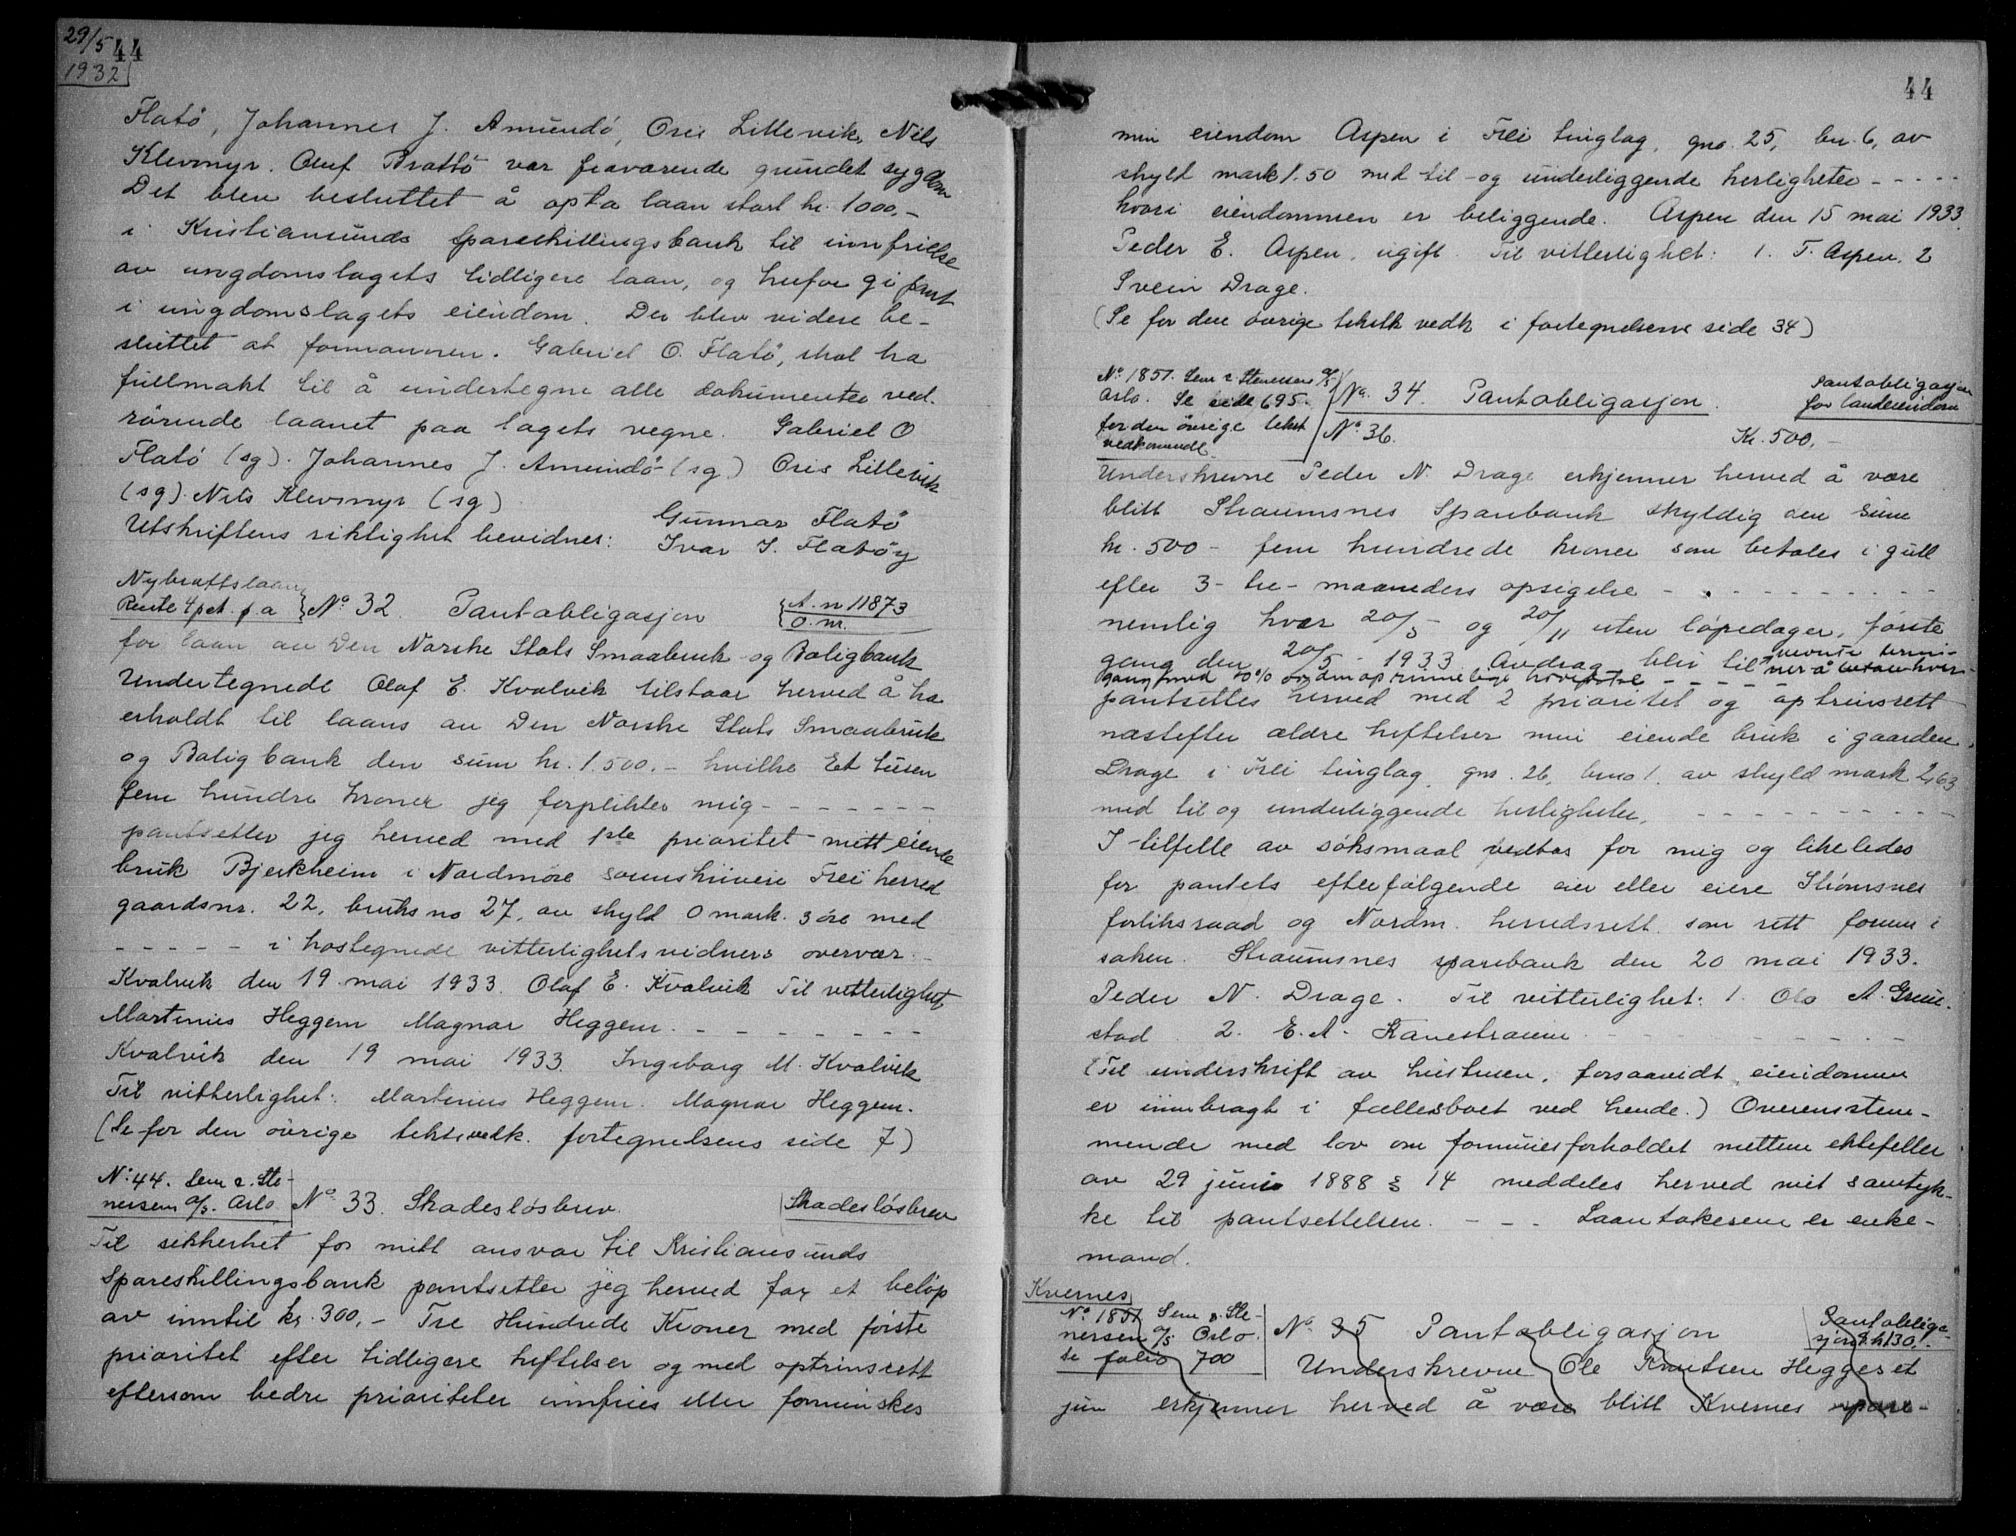 29/5 44
1932
Flatö, Johannes J. Amundö, Oris Lillevik, Nils
Klevmyr. Oluf Brattö var fraværende grundet sygdom
Det blev besluttet å opta laan stort kr. 1000,-
i Kristiansunds Spareskillingsbank til innfrielse
av ungdomslagets tidligere laan, og herfor gi pant
i ungdomslagets eiendom. Der blev videre be-
sluttet at formannen. Gabriel O. Flatö, skal ha
fullmakt til å undertegne alle dokumenter ved.
rörende laanet paa lagets vegne. Gabriel O
Flatö (sg). Johannes J. Amundö (sg) Oris Lillevik
(sg). Nils Klevmyr (sg)
Utskriftens riktighet bevidner: Gunnar Flatö
Ivar J. Flatöy
Nybrottslaan
Rente 4 pct. p.a } No 32. Pantobligasjon { A. nr 11873
O. nr.
for laan av Den Norske Stats Smaabruk og Boligbank
Undertegnede Olaf E. Kvalvik tilstaar herved å ha
erholdt til laans av Den Norske Stats Smaabruk
og Boligbank den sum kr. 1.500.- hvilke Et tusen
fem hundre kroner jeg forplikter mig - - - - - - -
pantsetter jeg herved med 1ste prioritet mitt eiende
bruk Bjerkheim i Nordmöre sorenskriveri Frei herred
gaardsnr. 22, bruksno 27, av skyld 0 mark. 3 öre med
- - - - - i hostegnede vitterlighetsvidners overvær. -
Kvalvik den 19 mai 1933. Olaf E. Kvalvik Til vitterlighet
Martinus Heggem Magnar Heggem. - - - - - - - -
Kvalvik den 19 mai 1933. Ingeborg M. Kvalvik
Til vitterlighet: Martinus Heggem. Magnar Heggem.
(Se for den övrige tekst vedk. fortegnelsens side 7)
No 44. Sem & Ste-
nersen A/S. Oslo No 33. Skadeslösbrev. Skadeslösbrev
Til sikkerhet for mitt ansvar til Kristiansunds
Spareskillingsbank pantsetter jeg herved for et belöp
av inntil kr. 300,- Tre Hundrede Kroner med förste
prioritet efter tidligere heftelser og med optrinsrett
eftersom bedre prioriteter innfries eller forminskes
44
min eiendom Aspen i Frei tinglag, gno. 25, bn. 6, av
skyld mark 1.50 med til- og underliggende herligheter - - - - -
hvori eiendommen er beliggende. Aspen den 15 mai 1933.
Peder E. Aspen, ugift. Til vitterlighet: 1. T. Aspen. 2
Svein Drage.
(Se for den övrige tekstk vedk i fortegnelsene side 34)
No 1851. Sem & Stenersen A/S
Oslo. Se side 695. No. 34 Pantobligasjon. Pantobligasjon
for landeiendom
for den övrige tekst
vedkommende. No 36. Kr. 500,-
Underskrevne Peder N. Drage erkjenner herved å være
blitt Straumsnes Sparebank skyldig den sum
kr. 500 - fem hundrede kroner som betales i gull
efter 3 - tre - maaneders opsigelse - - - - - - - - - -
nemlig hver 20/5 og 20/11 uten löpedager, förste
gang den 20/5 - 1933. Avdrag blir til nevnte termi-
gang med 10% av den oprinnelige hovedstol - - - - ner å betale hver
pantsettes herved med 2 prioritet og optrinsrett
næstefter ældre heftelser min eiende bruk i gaarden
Drage i Frei tinglag, gno. 26, bno 1. av skyld mark 2,63
med til og underliggende herligheter, - - - - - - - - -
I tilfelle av söksmaal vedtas for mig og likeledes
for pantets efterfölgende eier eller eiere Strömsnes
forliksraad og Nordm. herredsrett som rett forum i
saken. Straumsnes sparebank den 20 mai 1933.
Peder N. Drage. Til vitterlighet: 1. Ola A. Grim-
stad 2. E. A. Kanestraum - - - - - - -
(Til underskrift av hustruen, forsaavidt eiendommen
er innbragt i fællesboet ved hende.) Overenstem-
mende med lov om formuesforholdet mellem ektefeller
av 29 juni 1888 § 14 meddeles herved mit samtyk-
ke til pantsettelsen. - - - Laantakeren er enke-
mand.
Kvernes
No 1851 Sem & Ste-
nersen A/S Oslo. No 35 Pantobligasjon Pantobliga-
sjon kr. 130,-
se folio 700 Underskrevne Ole Knutsen Heggeset
jun erkjenner herved å være blitt Kvernes spare-